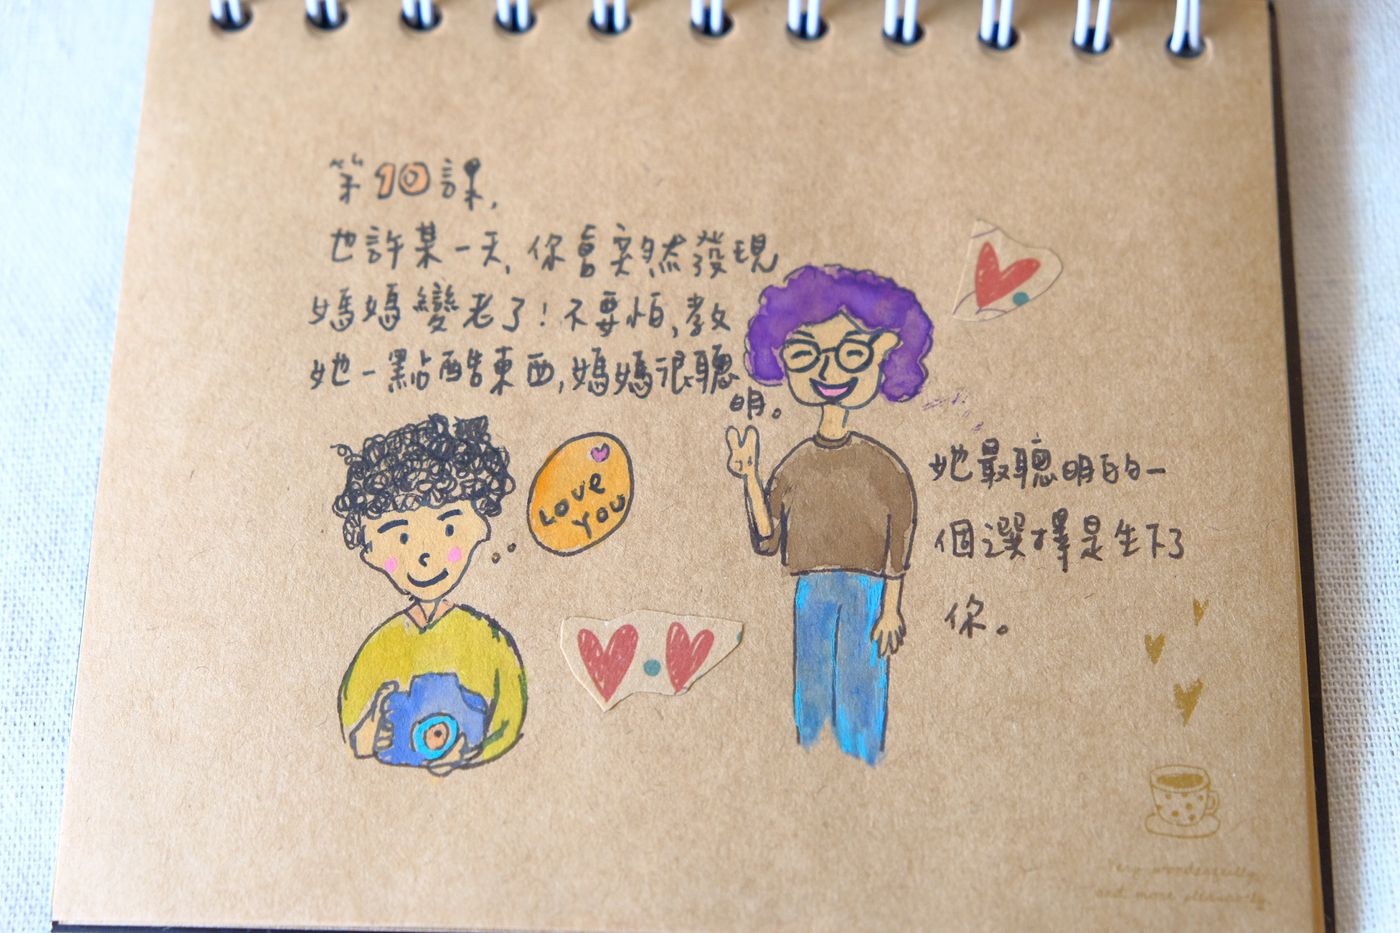 第10課,
也許某一天,你會突然發現
媽媽變老了!不要怕,教
她一點酷東西,媽媽很聰
明。
LOVE
YOU
她最聰明的一
個選擇是生下了
你。
and more pleasantly.